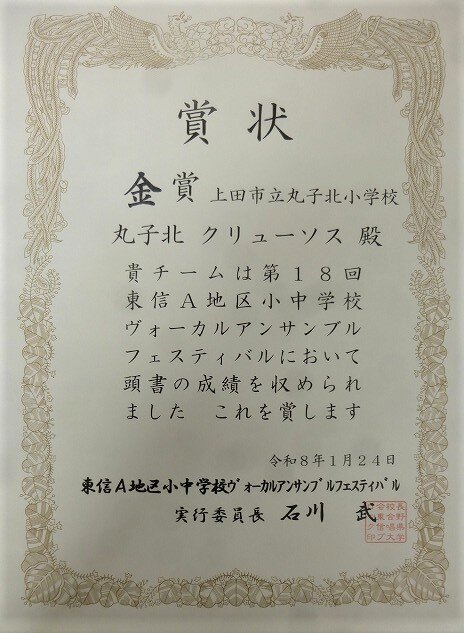 賞状
金賞 上田市立丸子北小学校
丸子北 クリューソス 殿
貴チームは第18回
東信A地区小中学校
ヴォーカルアンサンブル
フェスティバルにおいて
頭書の成績を収められ
ました これを賞します
令和8年1月24日
東信A地区小中学校ヴォーカルアンサンブルフェスティバル
実行委員長 石川 武